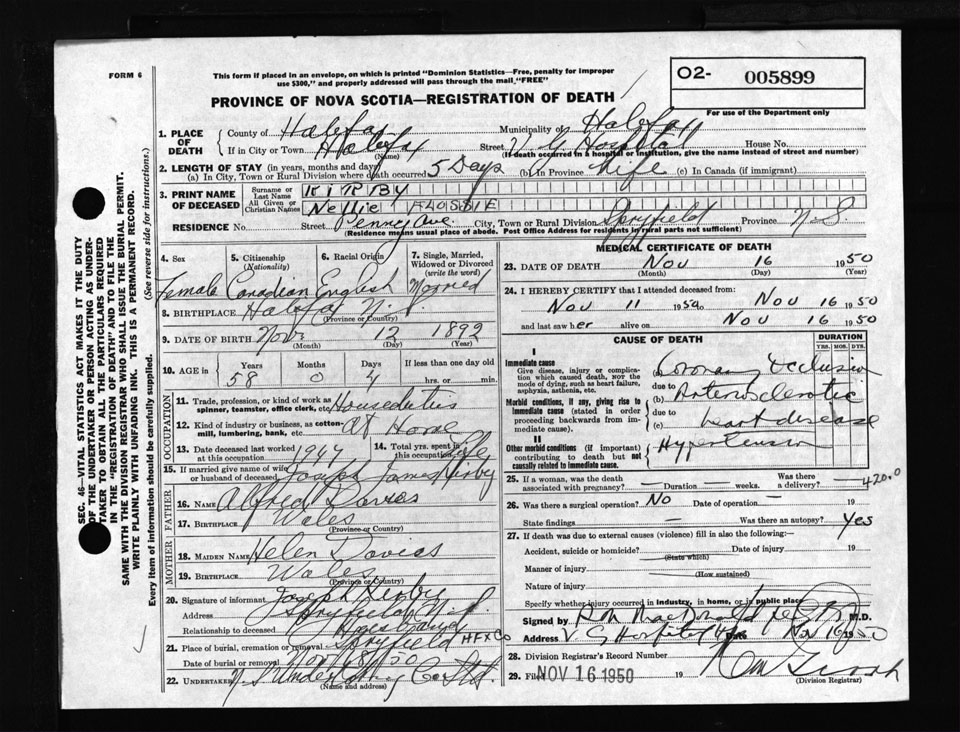 FORM 6
This form if placed in an envelope, on which is printed "Dominion Statistics—Free, penalty for improper
use $300," and properly addressed will pass through the mail "FREE"
O2- 005899
PROVINCE OF NOVA SCOTIA—REGISTRATION OF DEATH
For use of the Department only
1. PLACE OF DEATH
County of Halifax Municipality of Halifax
If in City or Town Halifax Street V. G. Hospital House No.
(Name) (If death occurred in a hospital or institution, give the name instead of street and number)
2. LENGTH OF STAY (in years, months and days)
(a) In City, Town or Rural Division where death occurred 5 Days (b) In Province Life (c) In Canada (if immigrant)
3. PRINT NAME OF DECEASED
Surname or Last Name KIRBY
All Given or Christian Names Nellie FLOSSIE
RESIDENCE No. Street Penney Ave. City, Town or Rural Division Spryfield Province N.S.
(Residence means usual place of abode. Post Office Address for residents in rural parts not sufficient)
4. Sex Female
5. Citizenship (Nationality) Canadian
6. Racial Origin English
7. Single, Married, Widowed or Divorced (write the word) Married
8. BIRTHPLACE Halifax N.S.
(Province or Country)
9. DATE OF BIRTH Nov. 12 1892
(Month) (Day) (Year)
10. AGE in Years Months Days If less than one day old
58 0 4 hrs. or min.
OCCUPATION
11. Trade, profession, or kind of work as spinner, teamster, office clerk, etc. Householduties
12. Kind of industry or business, as cotton-mill, lumbering, bank, etc. at Home
13. Date deceased last worked at this occupation 1947
14. Total yrs. spent in this occupation Life
15. If married give name of wife or husband of deceased Joseph James Kirby
FATHER
16. Name Alfred Davies
17. Birthplace Wales
(Province or Country)
MOTHER
18. Maiden Name Helen Davies
19. Birthplace Wales
(Province or Country)
20. Signature of informant Joseph Kirby
Address Spryfield N.S.
Relationship to deceased Husband
21. Place of burial, cremation or removal Spryfield HFX Co
Date of burial or removal Nov 18/50
22. Undertaker N.S. Undertaking Co Ltd.
(Name and address)
MEDICAL CERTIFICATE OF DEATH
23. DATE OF DEATH Nov 16 1950
(Month) (Day) (Year)
24. I HEREBY CERTIFY that I attended deceased from:
Nov 11 1950 to Nov 16 1950
and last saw her alive on Nov 16 1950
CAUSE OF DEATH
DURATION
YRS. MOS. DYS.
I
Immediate cause
Give disease, injury or complication which caused death, not the mode of dying, such as heart failure, asphyxia, asthenia, etc.
(a) Coronary Occlusion
due to
Morbid conditions, if any, giving rise to immediate cause (stated in order proceeding backwards from immediate cause).
(b) Arteriosclerotic
due to
(c) heart disease
II
Other morbid conditions (if important) contributing to death but not causally related to immediate cause.
Hypertension
25. If a woman, was the death associated with pregnancy? — Duration — weeks. Was there a delivery? —
4200
26. Was there a surgical operation? No Date of operation — 19
State findings — Was there an autopsy? Yes
27. If death was due to external causes (violence) fill in also the following:—
Accident, suicide or homicide? Date of injury 19
(State which)
Manner of injury
(How sustained)
Nature of injury
Specify whether injury occurred in industry, in home, or in public place
Signed by MacDonald M.D.
Address V G Hospital Date Nov 16 1950
28. Division Registrar's Record Number
29. Filed NOV 16 1950 19
(Division Registrar)
SEC. 46—VITAL STATISTICS ACT MAKES IT THE DUTY
OF THE UNDERTAKER OR PERSON ACTING AS UNDER-
TAKER TO OBTAIN ALL THE PARTICULARS REQUIRED
IN THE "REGISTRATION OF DEATH" AND TO FILE THE
SAME WITH THE DIVISION REGISTRAR WHO SHALL ISSUE THE BURIAL PERMIT.
WRITE PLAINLY WITH UNFADING INK. THIS IS A PERMANENT RECORD.
Every item of information should be carefully supplied. (See reverse side for instructions.)